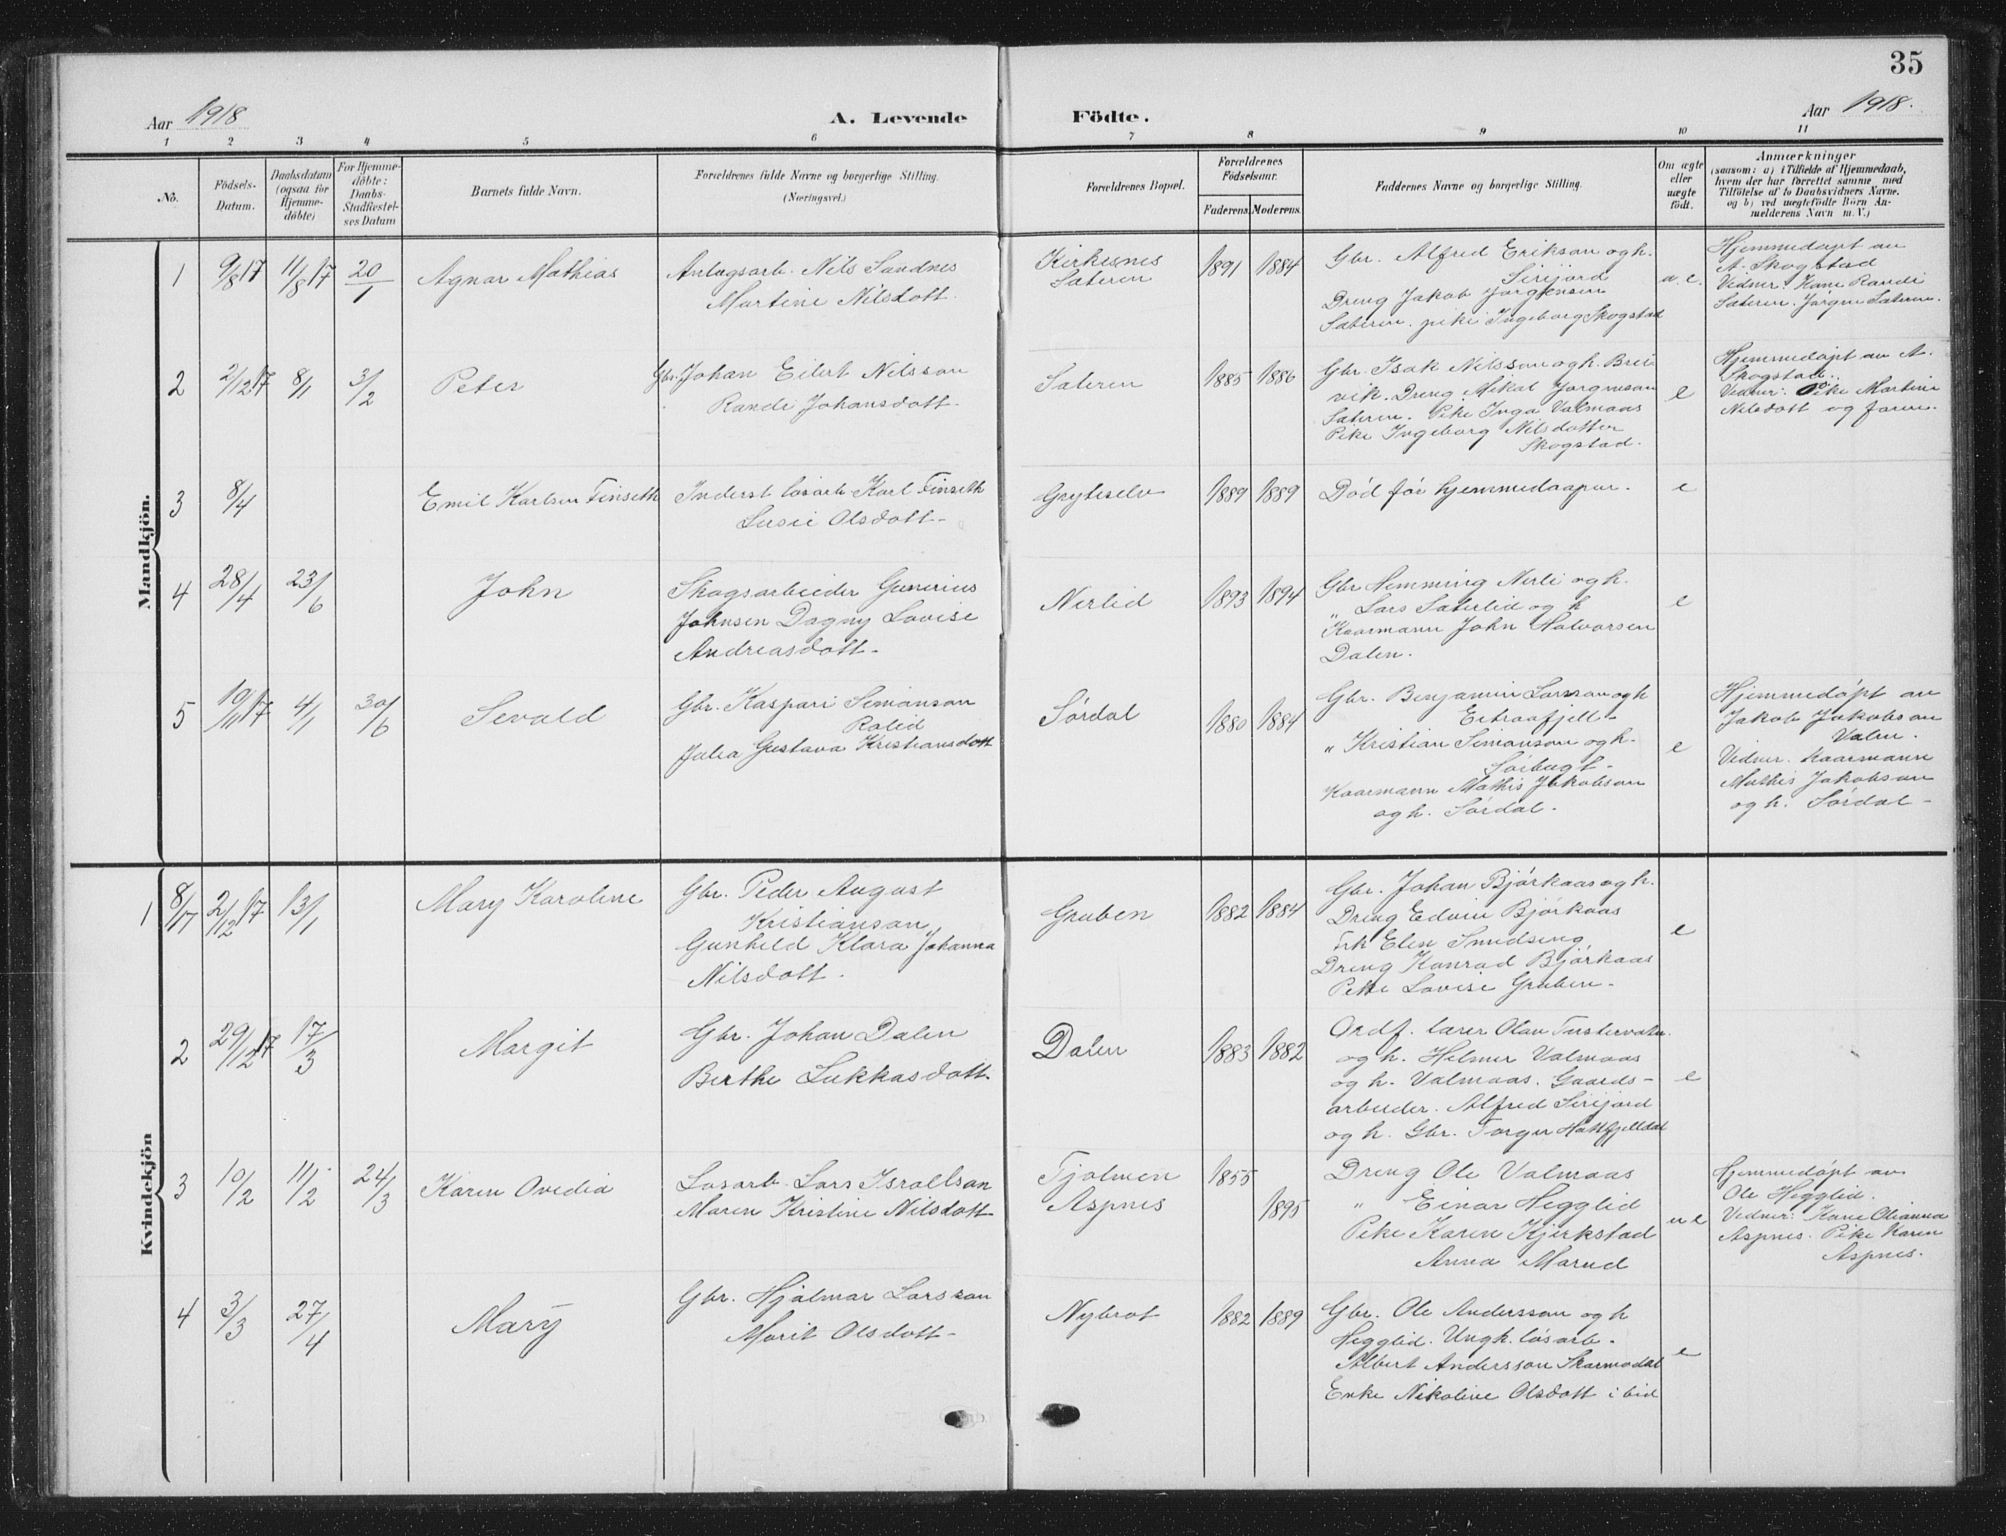 35
Aar 1918
A. Levende Födte.
Aar 1918.
1 2 3 4 5 6 7 8 9 10 11
No.
Födsels-
Datum.
Daabsdatum
(ogsaa for
Hjemme-
döbte)
For Hjemme-
döbte:
Daabs-
Stadfæstel-
ses Datum
Barnets fulde Navn.
Forældrenes fulde Navne og borgerlige Stilling.
(Næringsvei.)
Forældrenes Bopæl.
Forældrenes
Födselsaar.
Faderens. Moderens.
Faddernes Navne og borgerlige Stilling.
Om ægte
eller
uægte
födt.
Anmærkninger
(saasom: a) i Tilfælde af Hjemmedaab,
hvem der har forrettet samme med
Tilföielse af to Daabsvidners Navne.
og b) ved uægtefödte Börn An-
melderens Navn m. V.)
Mandkjön.
1 9/8 17 11/8 17 20/1 Agnar Mathias
Anlagsarb. Nils Sandnes
Martine Nilsdott.
Kirkesnes
Sæteren
1891 1884
Gbr. Alfred Erikson og h.
Sirijord
Dreng Jakob Jørgensen
Sæteren. pike Ingeborg Skogstad
u. e.
Hjemmedøpt av
A. Skogstad
Vidner: Kone Randi
Sæteren. Jørgen Sæteren.
2 2/12 17 8/1 3/2 Peter
Gbr. Johan Eilert Nilsson
Randi Johansdott.
Sæteren
1885 1886
Gbr. Isak Nilsson og h. Brei
vik. Dreng Mikal Jørgensen
Sæteren. Pike Inga Valmaas
Pike Ingeborg Nilsdotter
Skogstad.
e
Hjemmedøpt av A.
Skogstad.
Vidner: Pike Martine
Nilsdott og faren.
3 8/4 Emil Karlsen Finseth
Inderst løsarb. Karl Finseth
Lusie Olsdott-
Gryteselv
1889 1889
Død før hjemmedaapen.
e
4 28/4 23/6 John
Skogsarbeider Gunerius
Johnsen Dagny Lovise
Andreasdott-
Nerlid
1893 1894
Gbr Hemming Nerli og h.
" Lars Sæterlid og h
Kaarmann John Halvorsen
Dalen.
e
5 10/11 17 4/1 30/6 Sevald
Gbr. Kaspari Simonson
Rølid
Julia Gustava Kristiansdott
Sørdal
1880 1884
Gbr. Benjamin Larsson og h
Eiteraafjell-
" Kristian Simonson og h.
Sørbugt-
Kaarmann Mathis Jakobson
og h. Sørdal.
e
Hjemmedøpt av
Jakob Jakobson
Valen.
Vidner. Kaarmann
Mathis Jakobson
og h. Sørdal-
Kvindekjön
1 8/17 2/12 17 13/1 Mary Karoline
Gbr. Peder August
Kristianson
Gunhild Klara Johanna
Nilsdott.
Gruben
1882 1884
Gbr. Johan Bjørkaas og h.
Dreng Edvin Bjørkaas
Frk Elen Smedseng
Dreng Konrad Bjørkaas
Pike Lovise Gruben.
e
2 29/12 17 17/3 Margit
Gbr. Johan Dalen
Berthe Lukkasdott.
Dalen
1883 1882
Ordf. lærer Olav Tustervatn
og h. Helmer Valmaas
og h. Valmaas. Gaards-
arbeider. Alfred Sirijord
og h. Gbr. Torger Hattfjelldal
e
3 10/2 11/2 24/3 Karen Ovedia
Løsarb. Lars Isrællson
Maren Kristine Nilsdott
Tjolmen
Aspnes
1855
1895
Dreng Ole Valmaas
" Einar Hegglid
Pike Karen Kjerkstad
Anna Marud
u e
Hjemmedøpt av
Ole Hegglid.
Vidner: Kone Olianna
Aspnes. Pike Karen
Aspnes.
4 3/3 27/4 Mary
Gbr. Hjalmar Larsson
Marit Olsdott-
Nybrot
1882 1889
Gbr. Ole Andersson og h
Hegglid. Ungk. løsarb.
Albert Andersson Skarmodal
Enke Nikoline Olsdott ibid
e